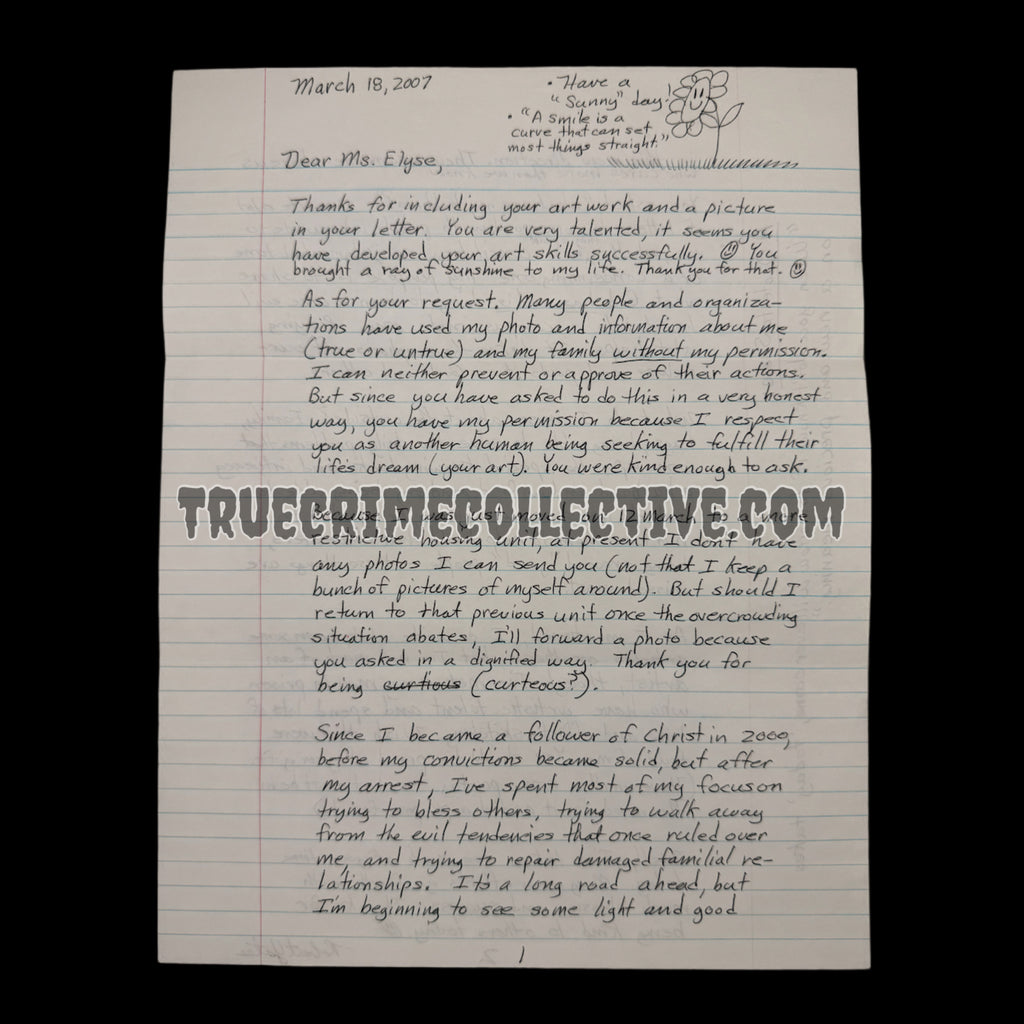 March 18, 2007
• Have a
"Sunny" day!
• "A smile is a
curve that can set
most things straight."
Dear Ms. Elyse,
Thanks for including your art work and a picture
in your letter. You are very talented, it seems you
have developed your art skills successfully. ☺ You
brought a ray of sunshine to my life. Thank you for that. ☺
As for your request. Many people and organiza-
tions have used my photo and information about me
(true or untrue) and my family without my permission.
I can neither prevent or approve of their actions.
But since you have asked to do this in a very honest
way, you have my permission because I respect
you as another human being seeking to fulfill their
life's dream (your art). You were kind enough to ask.
TRUECRIMECOLLECTIVE.COM
Because I was just moved on 12 March to a more
restrictive housing unit, at present I don't have
any photos I can send you (not that I keep a
bunch of pictures of myself around). But should I
return to that previous unit once the overcrowding
situation abates, I'll forward a photo because
you asked in a dignified way. Thank you for
being curtious (curteous?).
Since I became a follower of Christ in 2000,
before my convictions became solid, but after
my arrest, I've spent most of my focus on
trying to bless others, trying to walk away
from the evil tendencies that once ruled over
me, and trying to repair damaged familial re-
lationships. It's a long road ahead, but
I'm beginning to see some light and good
1